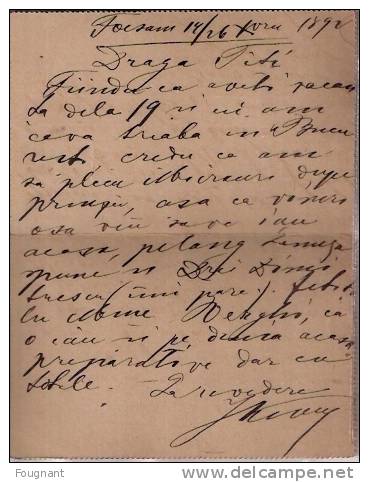 Focsani 14/26 Xvrie 1892
Draga Titi
Fiindu ca aveti vacan
ta dela 19 si eu am
ceva treaba in Bucu
resti, credu ca am
sa plecu Mercuri dupe
prinzu, asa ca Vineri
o sa viu sa ve iau
acasa, pe langa
spune si Dnei
trescu (imi pare).
lu Mme ca
o iau si pe densa acasa
preparative dar cu
totele. La revedere
Fougnant
http://www.delcampe.net